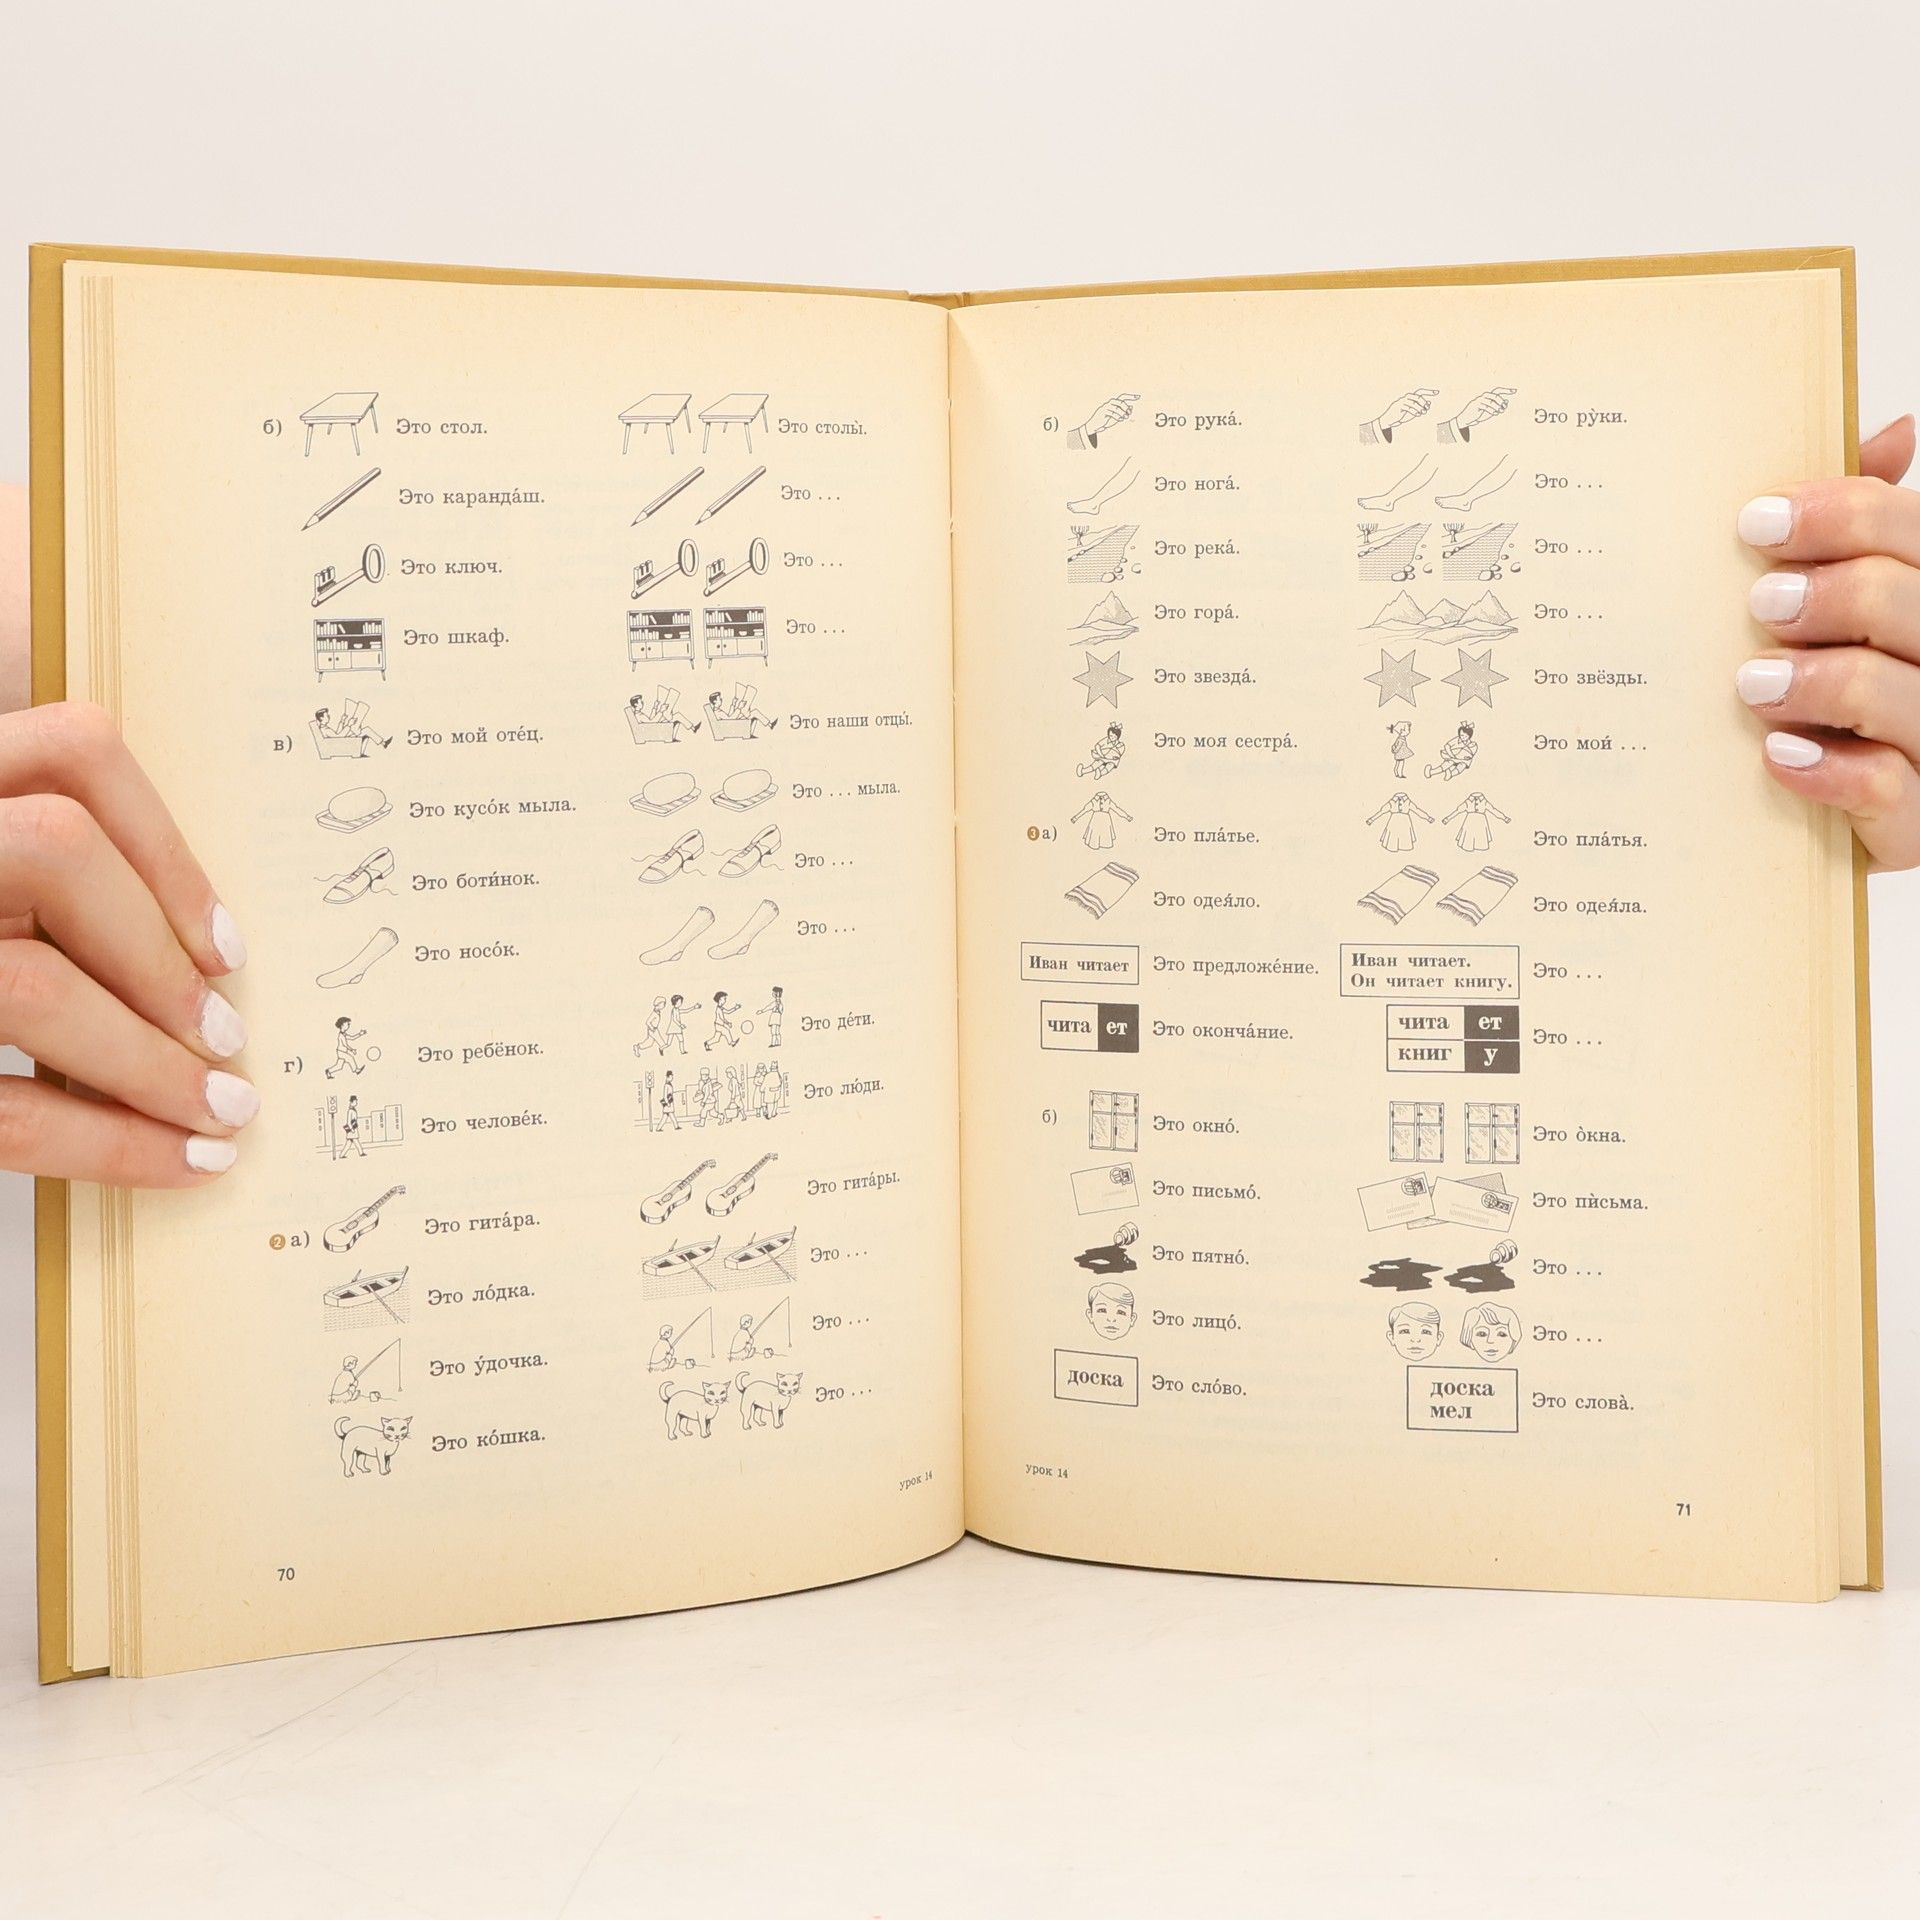 б) Это стол. Это столы̀.
Это каранда́ш. Это ...
Это ключ. Это ...
Это шкаф. Это ...
в) Это мой оте́ц. Это наши отцы́.
Это кусо́к мыла. Это ... мыла.
Это боти́нок. Это ...
Это носо́к. Это ...
г) Это ребёнок. Это де́ти.
Это челове́к. Это лю́ди.
2 а) Это гита́ра. Это гита́ры.
Это ло́дка. Это ...
Это у́дочка. Это ...
Это ко́шка. Это ...
урок 14
70
б) Это рука́. Это ру̀ки.
Это нога́. Это ...
Это река́. Это ...
Это гора́. Это ...
Это звезда́. Это звёзды.
Это моя сестра́. Это мои́ ...
3 а) Это пла́тье. Это пла́тья.
Это одея́ло. Это одея́ла.
Иван читает Это предложе́ние. Иван читает. Это ...
Он читает книгу.
чита ет Это оконча́ние. чита ет Это ...
книг у
б) Это окно́. Это о̀кна.
Это письмо́. Это пѝсьма.
Это пятно́. Это ...
Это лицо́. Это ...
доска Это сло́во. доска Это слова̀.
мел
урок 14
71